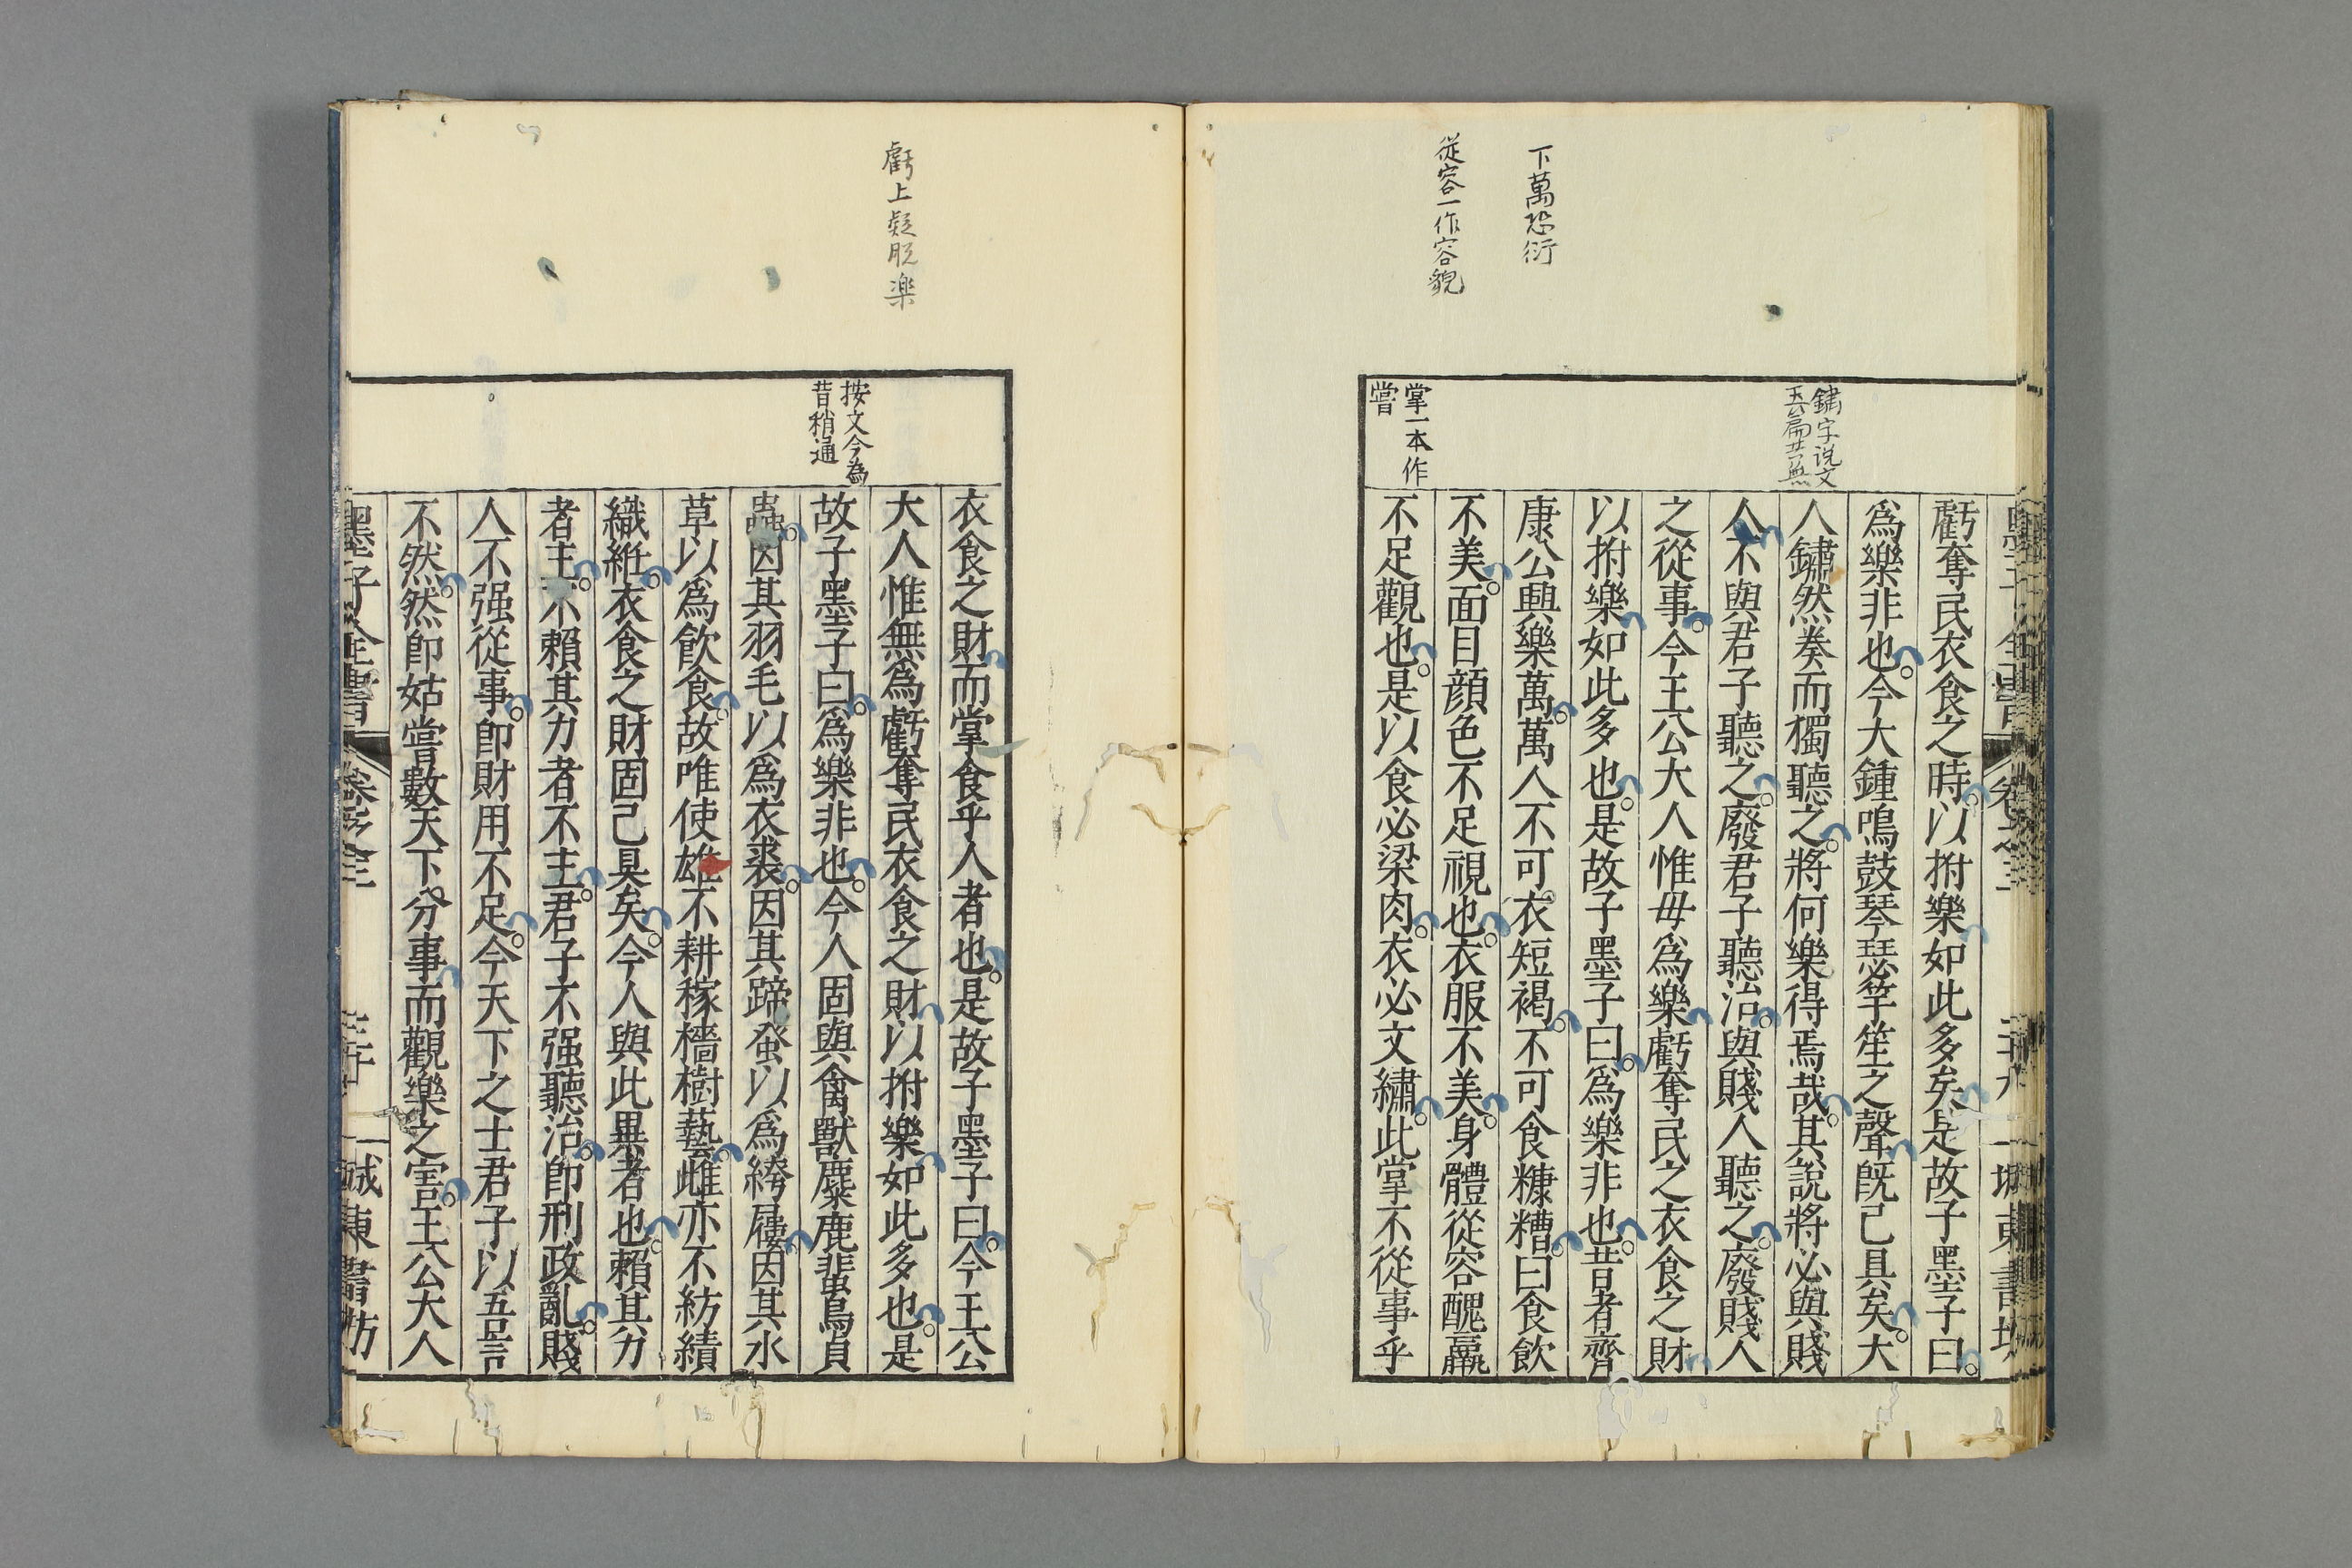 下萬恐衍
從容一作容貌
鏽字说文
玉篇共無
掌一本作
嘗
虧奪民衣食之時以拊樂如此多矣是故子墨子曰
爲樂非也今大鍾鳴鼓琴瑟竽笙之聲既已具矣大
人鏽然奏而獨聽之將何樂得焉哉其說將必與賤
人不與君子聽之廢君子聽治與賤人聽之廢賤人
之從事今王公大人惟毋爲樂虧奪民之衣食之財
以拊樂如此多也是故子墨子曰爲樂非也昔者齊
康公興樂萬萬人不可衣短褐不可食糠糟曰食飲
不美面目顔色不足視也衣服不美身體從容醜羸
不足觀也是以食必梁肉衣必文繡此掌不從事乎
虧上疑脱楽
按文今為
昔稍通
衣食之財而掌食乎人者也是故子墨子曰今王公
大人惟無爲虧奪民衣食之財以拊樂如此多也是
故子墨子曰爲樂非也今人固與禽獸麋鹿蜚鳥貞
蟲因其羽毛以爲衣裘因其蹄蚤以爲絝屨因其水
草以爲飲食故唯使雄不耕稼樯樹藝雌亦不紡績
織絍衣食之財固己具矣今人與此異者也賴其力
者主不賴其力者不主君子不强聽治卽刑政亂賤
人不强從事卽財用不足今天下之士君子以吾言
不然然卽姑嘗數天下分事而觀樂之害王公大人
墨子全書 卷之三 城東書坊